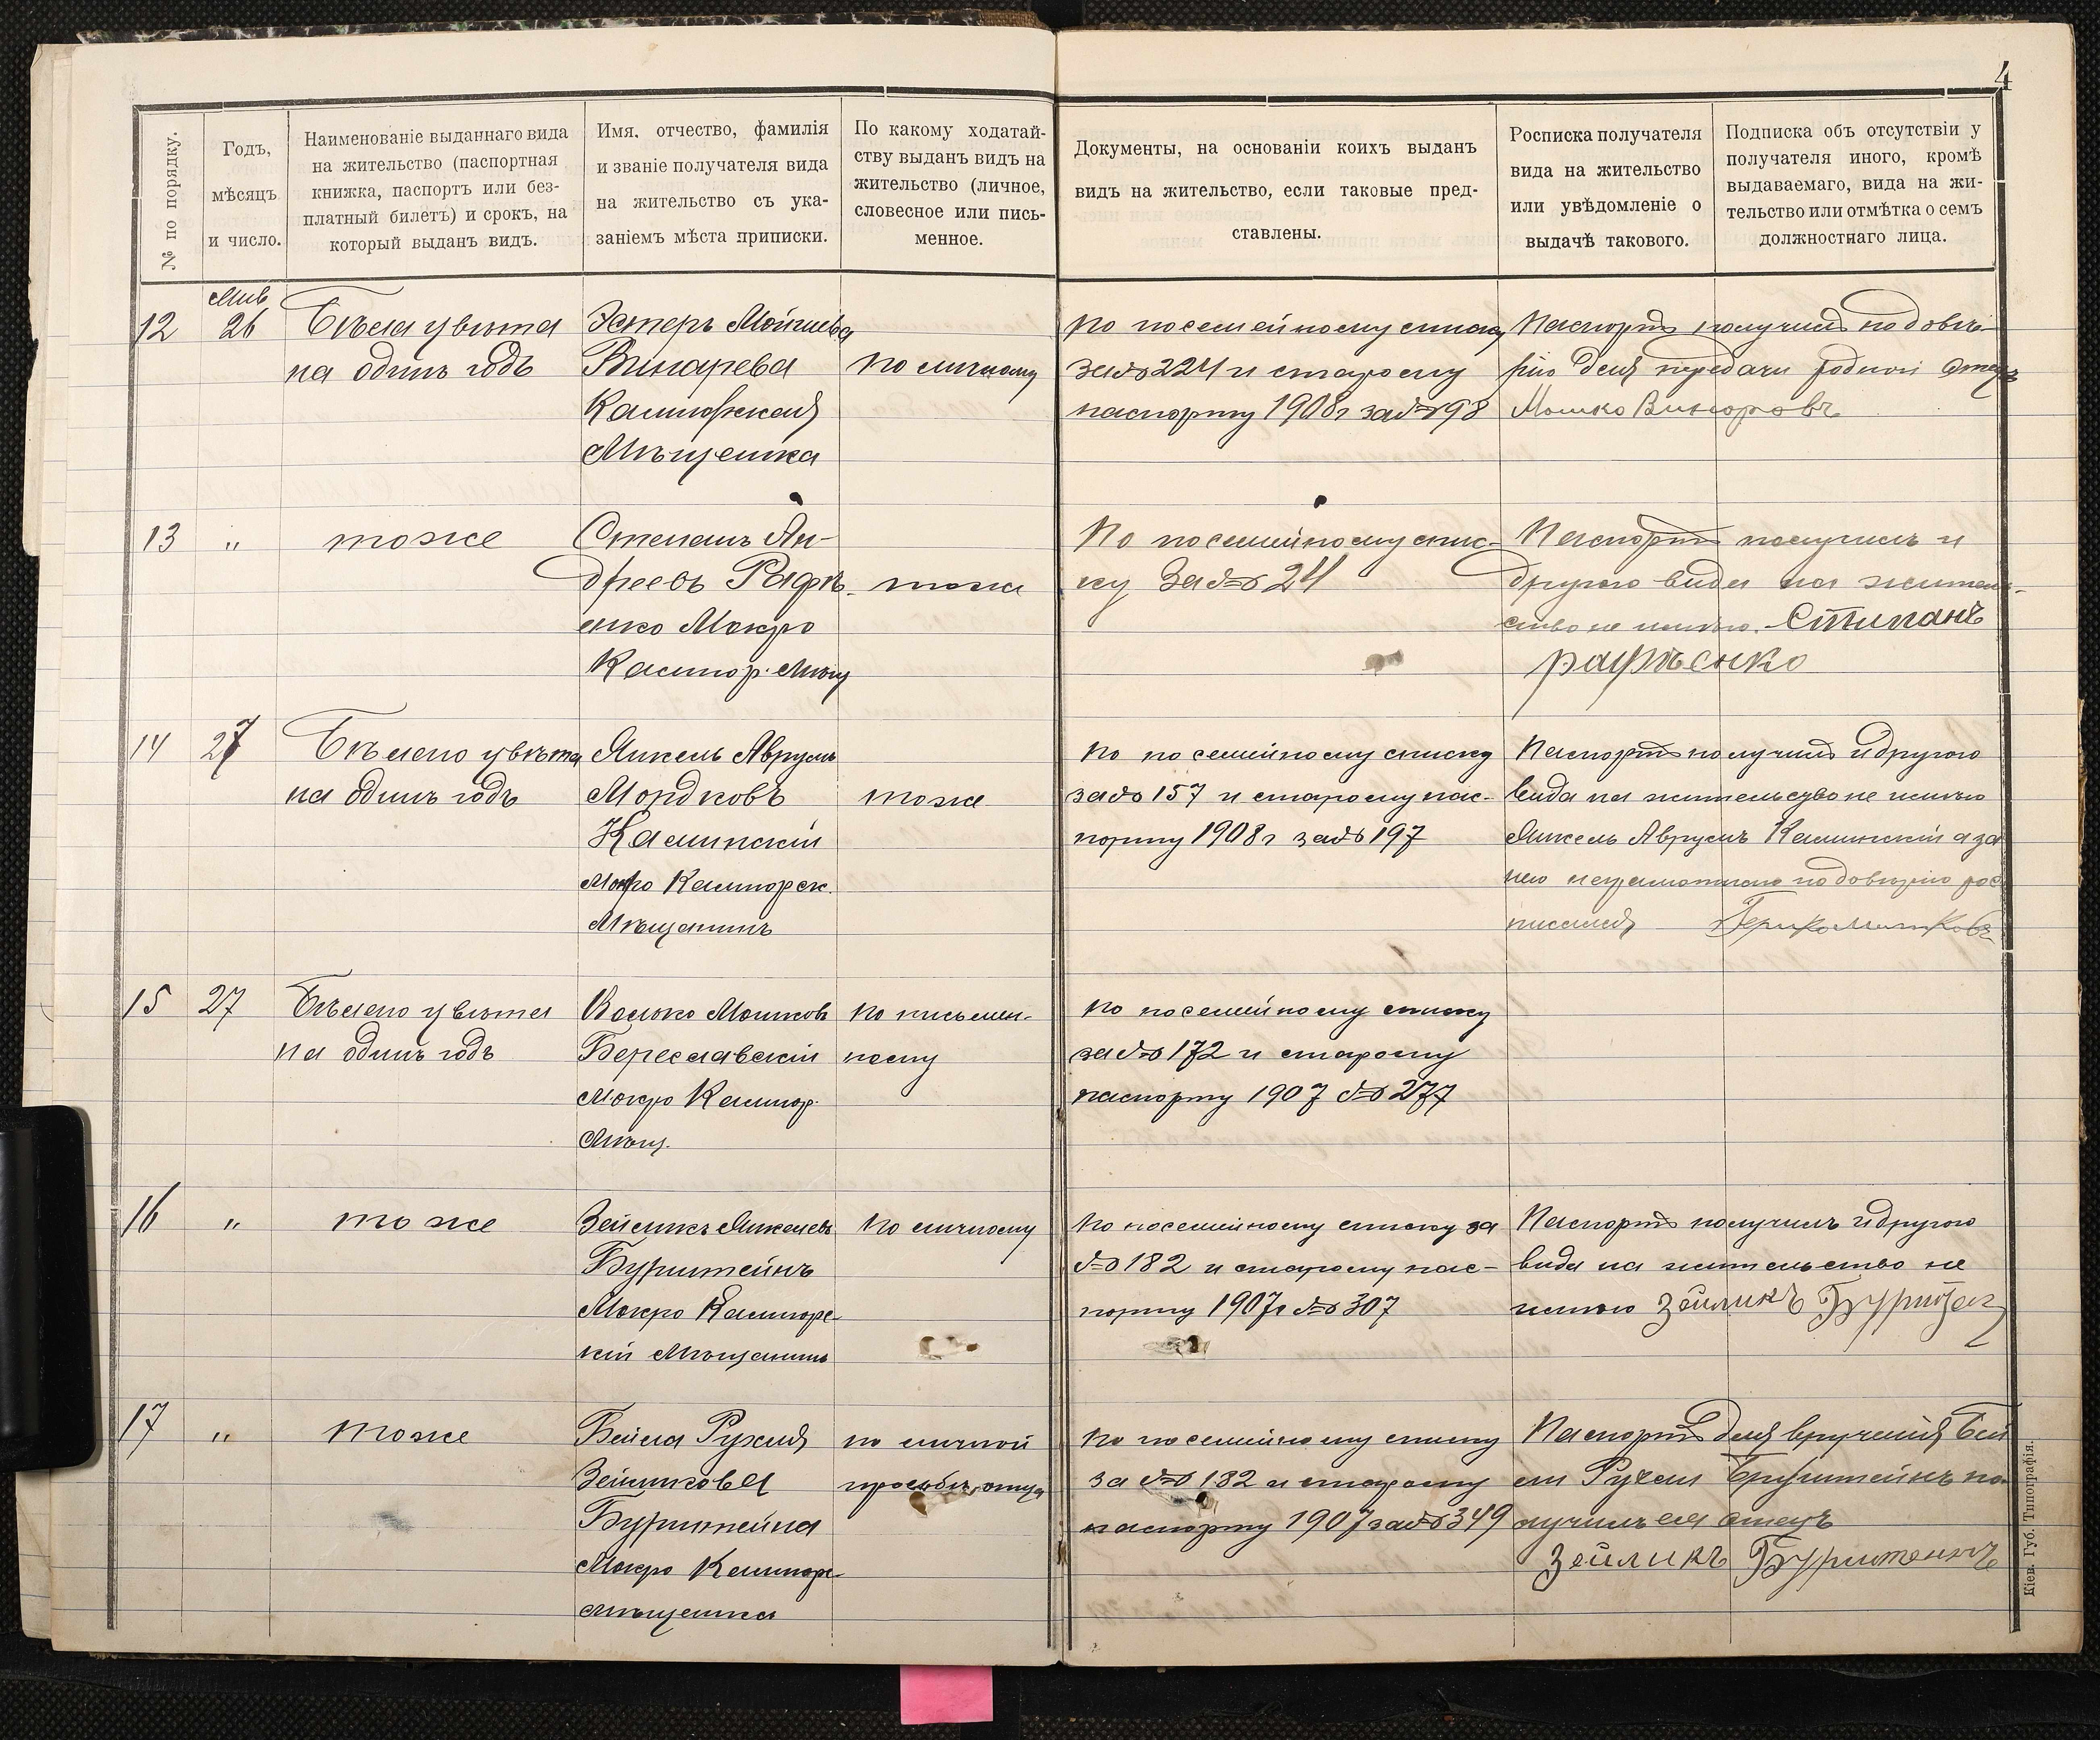 4
№ по порядку.
Годъ,
мѣсяцъ
и число.
Наименованіе выданнаго вида
на жительство (паспортная
книжка, паспортъ или без-
платный билетъ) и срокъ, на
который выданъ видъ.
Имя, отчество, фамилія
и званіе получателя вида
на жительство съ ука-
заніемъ мѣста приписки.
По какому ходатай-
ству выданъ видъ на
жительство (личное,
словесное или пись-
менное.
Документы, на основаніи коихъ выданъ
видъ на жительство, если таковые пред-
ставлены.
Росписка получателя
вида на жительство
или увѣдомленіе о
выдачѣ такового.
Подписка объ отсутствіи у
получателя иного, кромѣ
выдаваемаго, вида на жи-
тельство или отмѣтка о семъ
должностнаго лица.
12
26
Бѣлаго цвѣта
на одинъ годъ
Эстеръ Мойшева
Винарева
Кашторская
Мѣщанка
По личному
По посемейному списку
за № 224 и старому
паспорту 1908 г за № 198
Паспортъ получилъ по довѣ-
рію для передачи родной отецъ
Мошко Винаровъ
13
"
тоже
Степанъ Ан-
дреевъ Рафѣ-
енко Мокро
Кашпор. Мѣщ
тоже
По посемейному спис-
ку за № 24
Паспортъ получилъ и
другого вида на житель-
ство не имѣю. Стипанъ
рафѣенко
14
27
Бѣлаго цвѣта
на одинъ годъ
Янкель Аврумъ
Мордковъ
Каминскій
Мокро Калигорск.
Мѣщанинъ
тоже
По посемейному списку
за № 157 и старому пас-
порту 1908 г за № 197
Паспортъ получилъ и другого
вида на жительство не имѣю
Янкель Аврумъ Каминскій а за
него неграмотнаго по довѣрію рос
писался
15
27
Бѣлаго цвѣта
на одинъ годъ
Волько Мошковъ
Береславскій
Мокро Калигор.
Мѣщ.
По письмен-
ному
По посемейному списку
за № 172 и старому
паспорту 1907 № 277
16
"
тоже
Зейликъ Янкелевъ
Бурштейнъ
Мокро Калигорс-
кій Мѣщанинъ
По личному
По посемейному списку за
№ 182 и старому пас-
порту 1907 г № 307
Паспортъ получилъ и другого
вида на жительство не
имѣю Зейликъ
17
"
тоже
Бейла Рухля
Зейликова
Бурштейна
Мокро Калигорс-
мѣщанка
по личной
просьбѣ отца
По посемейному списку
за № 182 и старому
паспорту 1907 за № 349
Паспортъ для врученія Бей
ли Рухли Бурштейнъ по-
лучилъ ея отецъ
Зейликъ Бурштенъ
Кіев. Губ. Типографія.